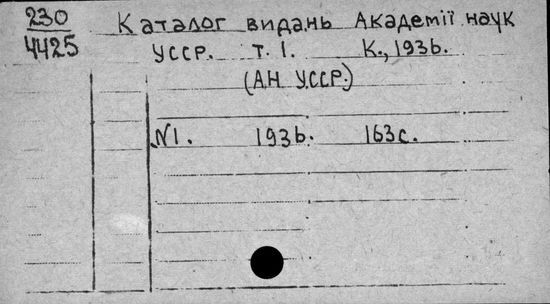 230
4425
Каталог видань Академії наук
УССР. т. 1. К., 1936.
(АН УССР.)
№1. 1936. 163с.